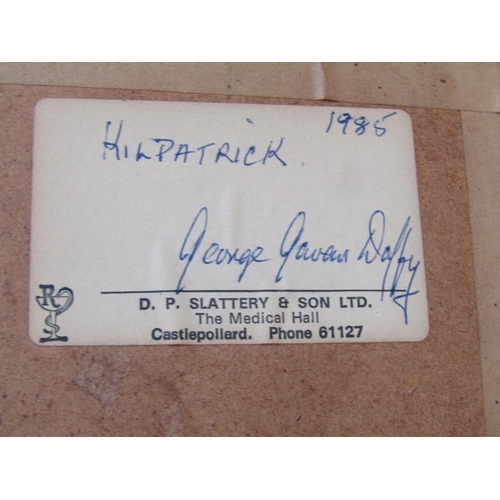 1985
KILPATRICK.
George Gavan Duffy
R
D. P. SLATTERY & SON LTD.
The Medical Hall
Castlepollard. Phone 61127